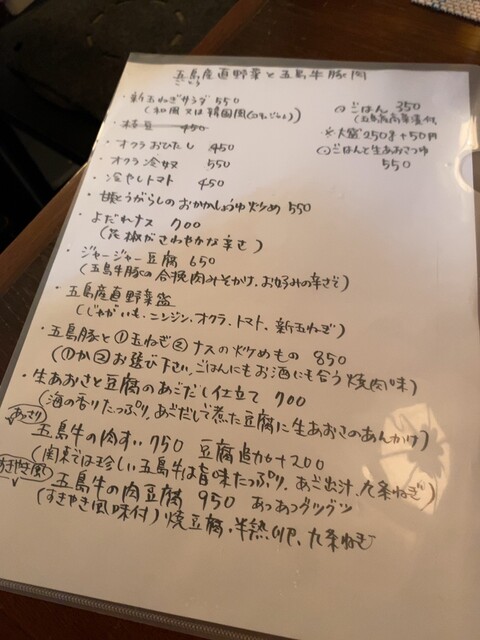 五島産直野菜と五島牛豚肉
ごとう
・新玉ねぎサラダ 550
(和風又は韓国風(コチュジャン)
・枝豆 450
・オクラおひたし 450
・オクラ冷奴 550
・冷やしトマト 450
・甘とうがらしのおかかしょうゆ炒め 550
・よだれナス 700
(花椒がさわやかな辛さ)
・ジャージャー豆腐 650
(五島牛豚の合挽肉みそかけ、お好みの辛さで)
・五島産直野菜盛
(じゃがいも、ニンジン、オクラ、トマト、新玉ねぎ)
・五島豚と①玉ねぎ②ナスの炒めもの 850
(①か②お選び下さい、ごはんにもお酒にも合う焼肉味)
・生あおさと豆腐のあごだし仕立て 700
(海の香りたっぷり、あごだしで煮た豆腐に生あおさのあんかけ)
あっさり
五島牛の肉すい 750 豆腐追加+200
(関東では珍しい五島牛は旨味たっぷり、あご出汁、九条ねぎ)
すきやき風
五島牛の肉豆腐 950 あつあつグツグツ
(すきやき風味付)焼豆腐、半熟卵、九条ねぎ
ごはん 350
※大盛250g+50円
ごはんと生あおさつゆ
550